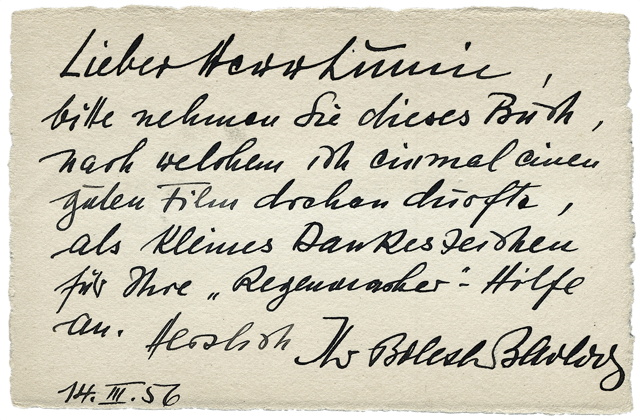 Lieber Herr
bitte nehmen Sie dieses Buch,
nach welchem ich einmal einen
guten Film drehen durfte,
als kleines Dankeszeichen
für Ihre „Regenmacher"-Hilfe
an. Herzlich Ihr Barlog
14. III. 56